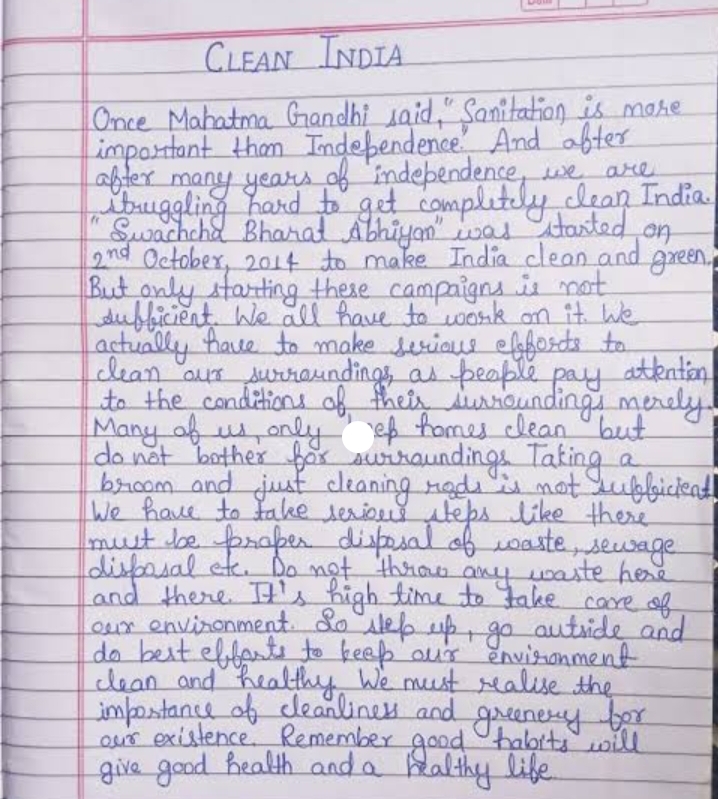 CLEAN INDIA
Once Mahatma Gandhi said, "Sanitation is more
important than Independence." And after
after many years of independence, we are
struggling hard to get completely clean India.
"Swachchd Bharat Abhiyan" was started on
2nd October, 2014 to make India clean and green.
But only starting these campaigns is not
sufficient. We all have to work on it. We
actually have to make serious efforts to
clean our surroundings, as people pay attention
to the conditions of their surroundings merely.
Many of us, only eep homes clean but
do not bother for surroundings. Taking a
broom and just cleaning rods is not sufficient.
We have to take serious steps like there
must be proper disposal of waste, sewage
disposal etc. Do not throw any waste here
and there. It's high time to take care of
our environment. So step up, go outside and
do best efforts to keep our environment
clean and healthy. We must realise the
importance of cleanliness and greenery for
our existence. Remember good habits will
give good health and a healthy life